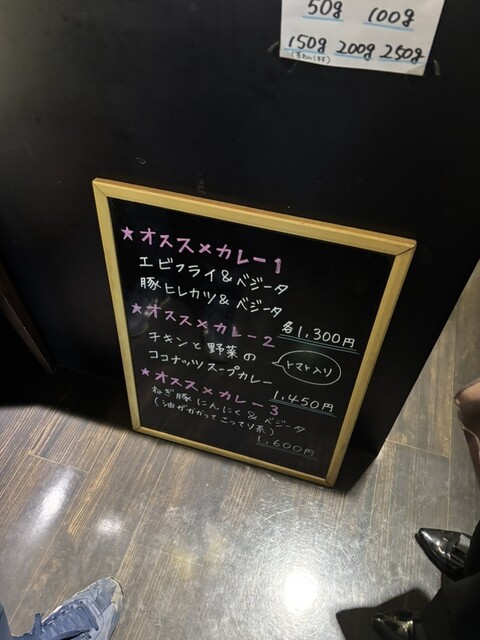 50g 100g
150g 200g 250g
★オススメカレー1
エビフライ&ベジータ
豚ヒレカツ&ベジータ
各1,300円
★オススメカレー2
チキンと野菜の
ココナッツスープカレー
トマト入り
1,450円
★オススメカレー3
ねぎ豚にんにく&ベジータ
(油がかかってこってり系)
1,600円